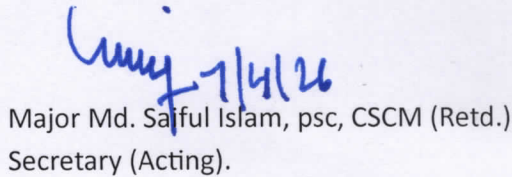 7/4/26
Major Md. Saiful Islam, psc, CSCM (Retd.)
Secretary (Acting).